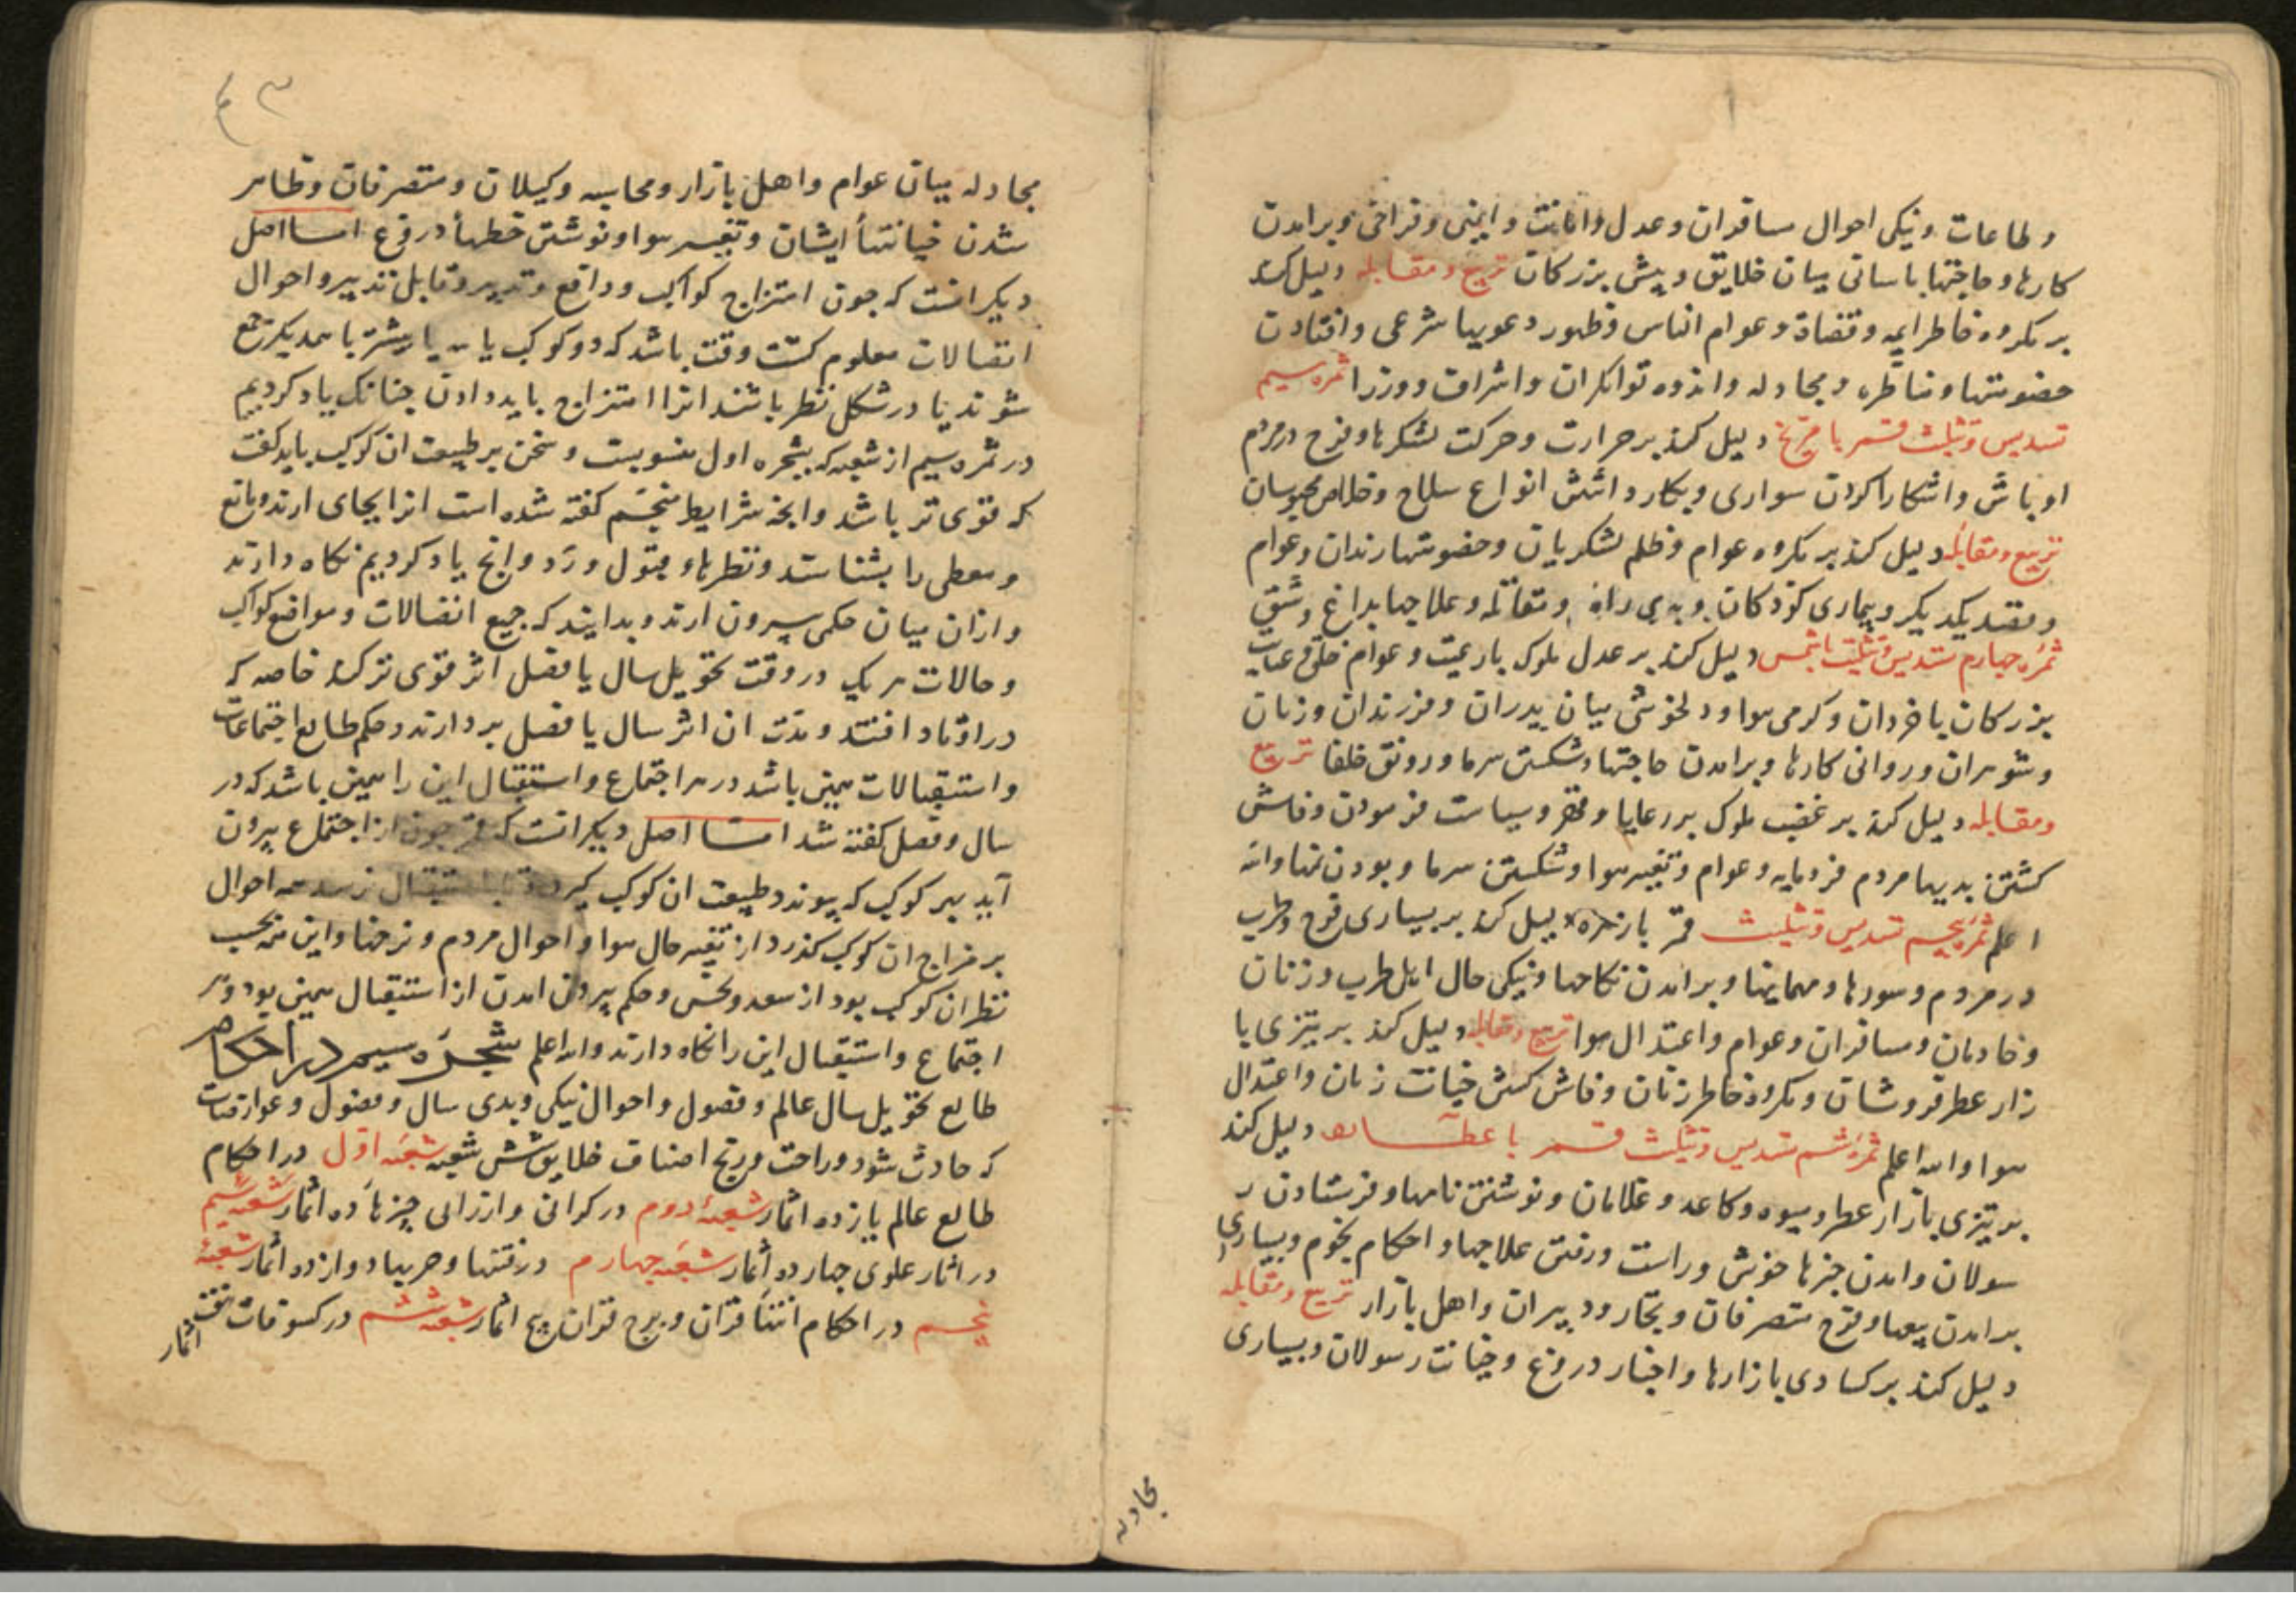 وطاعات ونیکی احوال مسافران وعدل وامانت وایمنی وفراخی وبرامدن
کارها وحاجتها باسانی میان خلایق وپیش بزرکان تربیع ومقابله دلیل کند
بر مکروه خاطر ایمه وقضاة وعوام الناس وظهور دعویها شرعی وافتادن
خصومتها ومناظره ومجادله واندوه توانکران واشراف ووزرا ثمره سیم
تسدیس وتثلیث قمر با مریخ دلیل کند بر حرارت وحرکت لشکرها وفرح مردم
اوباش واشکارا کردن سواری وبکار داشتن انواع سلاح وخلاص محبوسان
تربیع ومقابله دلیل کند بر مکروه عوام وظلم لشکریان وخصومتها رندان وعوام
وقصد یکدیکر وبیماری کودکان ومقاتله وعلاجها بداغ وشق
ثمره چهارم تسدیس وتثلیث باشمس دلیل کند بر عدل ملوک بارعیت وعوام خلق
بزرکان با خردان وکرمی هوا ودلخوشی میان پدران وفرزندان وزنان
وشوهران وروانی کارها وبرامدن حاجتها وشکستن سرما ورونق خلفا تربیع
ومقابله دلیل کند بر غضب ملوک بر رعایا وقهر وسیاست فرمودن وفاش
کشتن بدیها مردم فرومایه وعوام وتغییر هوا وشکستن سرما وبودن نمها والله
اعلم ثمره پنجم تسدیس وتثلیث قمر بازهره دلیل کند بر بسیاری فرح وطرب
در مردم وسورها ومهمانیها وبرامدن نکاحها ونیکی حال اهل طرب وزنان
وخادمان ومسافران وعوام واعتدال هوا تربیع ومقابله دلیل کند بر تیزی با
زار عطر فروشان ومکروه خاطر زنان وفاش کشتن خیانت زنان واعتدال
هوا والله اعلم ثمره ششم تسدیس وتثلیث قمر با عطارد دلیل کند
بر تیزی بازار عطر ومیوه وکاعد وغلامان ونوشتن نامها وفرستادن ر
سولان وامدن خبرها خوش وراست ورفتن علاجها واحکام نجوم وبسیاری
برامدن بیعها وفرح متصرفان وتجار ودبیران واهل بازار تربیع ومقابله
دلیل کند بر کسادی بازارها واخبار دروغ وخیانت رسولان وبسیاری
مجادله
مجادله میان عوام واهل بازار ومحاسبه وکیلان ومتصرفان وظاهر
شدن خیانتهأ ایشان وتغییر هوا ونوشتن خطهأ دروغ امـا اصل
دیکر انست که چون امتزاج کواکب ودافع وتدبیر وقابل تدبیر واحوال
اتصالات معلوم کشت وقت باشد که دو کوکب یا سه یا بیشتر با همدیکر جمع
شوند یا در شکل نظر باشند انرا امتزاج باید دادن چنانک یاد کردیم
در ثمره سیم از شعبه که بشجره اول منسوبست وسخن بر طبیعت ان کوکب باید کفت
که قوی تر باشد وانچه شرایط منجم کفته شده است انرا بجای ارند ومانع
ومعطی را بشناسند ونظرها وقبول ورد وانچ یاد کردیم نکاه دارند
وازان میان حکمی بیرون ارند وبدانند که جمیع اتصالات ومواضع کواکب
وحالات هر یک در وقت تحویل سال یا فصل اثر قوی تر کند خاصه که
در اوتاد افتند ومدت ان اثر سال یا فصل بردارند وحکم طالع اجتماعات
واستقبالات همین باشد در هر اجتماع واستقبال این را همین باشد که در
سال وفصل کفته شد امـا اصل دیکر انست که قمر چون از اجتماع بیرون
آید بهر کوکب که پیوندد طبیعت ان کوکب کیرد وتا باستقبال نرسد احوال
بر مزاج ان کوکب کذرد از تغییر حال هوا واحوال مردم ونرخها واین همه بحسب
نظر ان کوکب بود از سعد ونحس وحکم بیرون امدن از استقبال همین بود ودر
اجتماع واستقبال این را نکاه دارند والله اعلم شجره سیم در احکام
طالع تحویل سال عالم وفصول واحوال نیکی وبدی سال وفصول وعوارضات
که حادث شود وراحت ورنج اصناف خلایق شش شعبه شعبه اول در احکام
طالع عالم یازده اثمار شعبهٔ دوم در کرانی وارزانی چیزها ده اثمار شعبه سیم
در اثار علوی چهارده اثمار شعبه چهارم در فتنها وحربها دوازده اثمار شعبهٔ
پنجم در احکام انتها قران وبرج قران پنج اثمار شعبه ششم در کسوفات هفت
اثمار